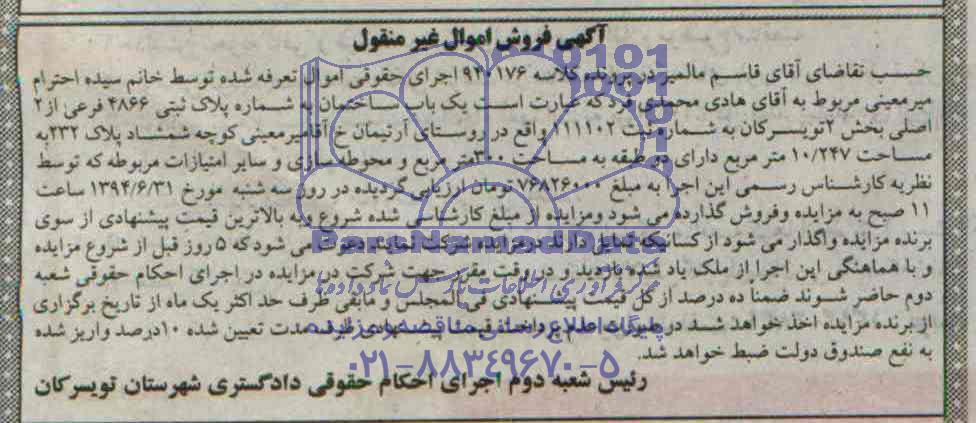 آگهی فروش اموال غیر منقول
حسب تقاضای آقای قاسم مالمیر در پرونده کلاسه ۹۲۰۱۷۶ اجرای حقوقی اموال تعرفه شده توسط خانم سیده احترام
میرمعینی مربوط به آقای هادی محمدی فرد که عبارت است یک باب ساختمان به شماره پلاک ثبتی ۴۸۶۶ فرعی از ۲
اصلی بخش ۲ تویسرکان به شماره ثبت ۱۱۱۱۰۲ واقع در روستای آرتیمان خ آقامیرمعینی کوچه شمشاد پلاک ۲۳۲ به
مساحت ۱۰/۲۴۷ متر مربع دارای دو طبقه به مساحت متر مربع و محوطه سازی و سایر امتیازات مربوطه که توسط
نظریه کارشناس رسمی این اجرا به مبلغ ۷۶۸۲۶۰۰۰ تومان ارزیابی گردیده در روز سه شنبه مورخ ۱۳۹۴/۶/۳۱ ساعت
۱۱ صبح به مزایده وفروش گذارده می شود ومزایده از مبلغ کارشناسی شده شروع وبه بالاترین قیمت پیشنهادی از سوی
برنده مزایده واگذار می شود از کسانیکه تمایل دارند درمزایده شرکت نمایند دعوت می شود که ۵ روز قبل از شروع مزایده
و با هماهنگی این اجرا از ملک یاد شده بازدید و در وقت مقرر جهت شرکت در مزایده در اجرای احکام حقوقی شعبه
دوم حاضر شوند ضمناً ده درصد از کل قیمت پیشنهادی فی المجلس و مابقی ظرف حد اکثر یک ماه از تاریخ برگزاری
از برنده مزایده اخذ خواهد شد در صورت عدم پرداخت قیمت پیشنهادی ظرف مدت تعیین شده ۱۰درصد واریز شده
به نفع صندوق دولت ضبط خواهد شد.
رئیس شعبه دوم اجرای احکام حقوقی دادگستری شهرستان تویسرکان
ParsNamadData
مرکز فرآوری اطلاعات پارس نماد داده ها
پایگاه اطلاع رسانی مناقصه و مزایده
۰۲۱-۸۸۳۴۹۶۷۰-۵